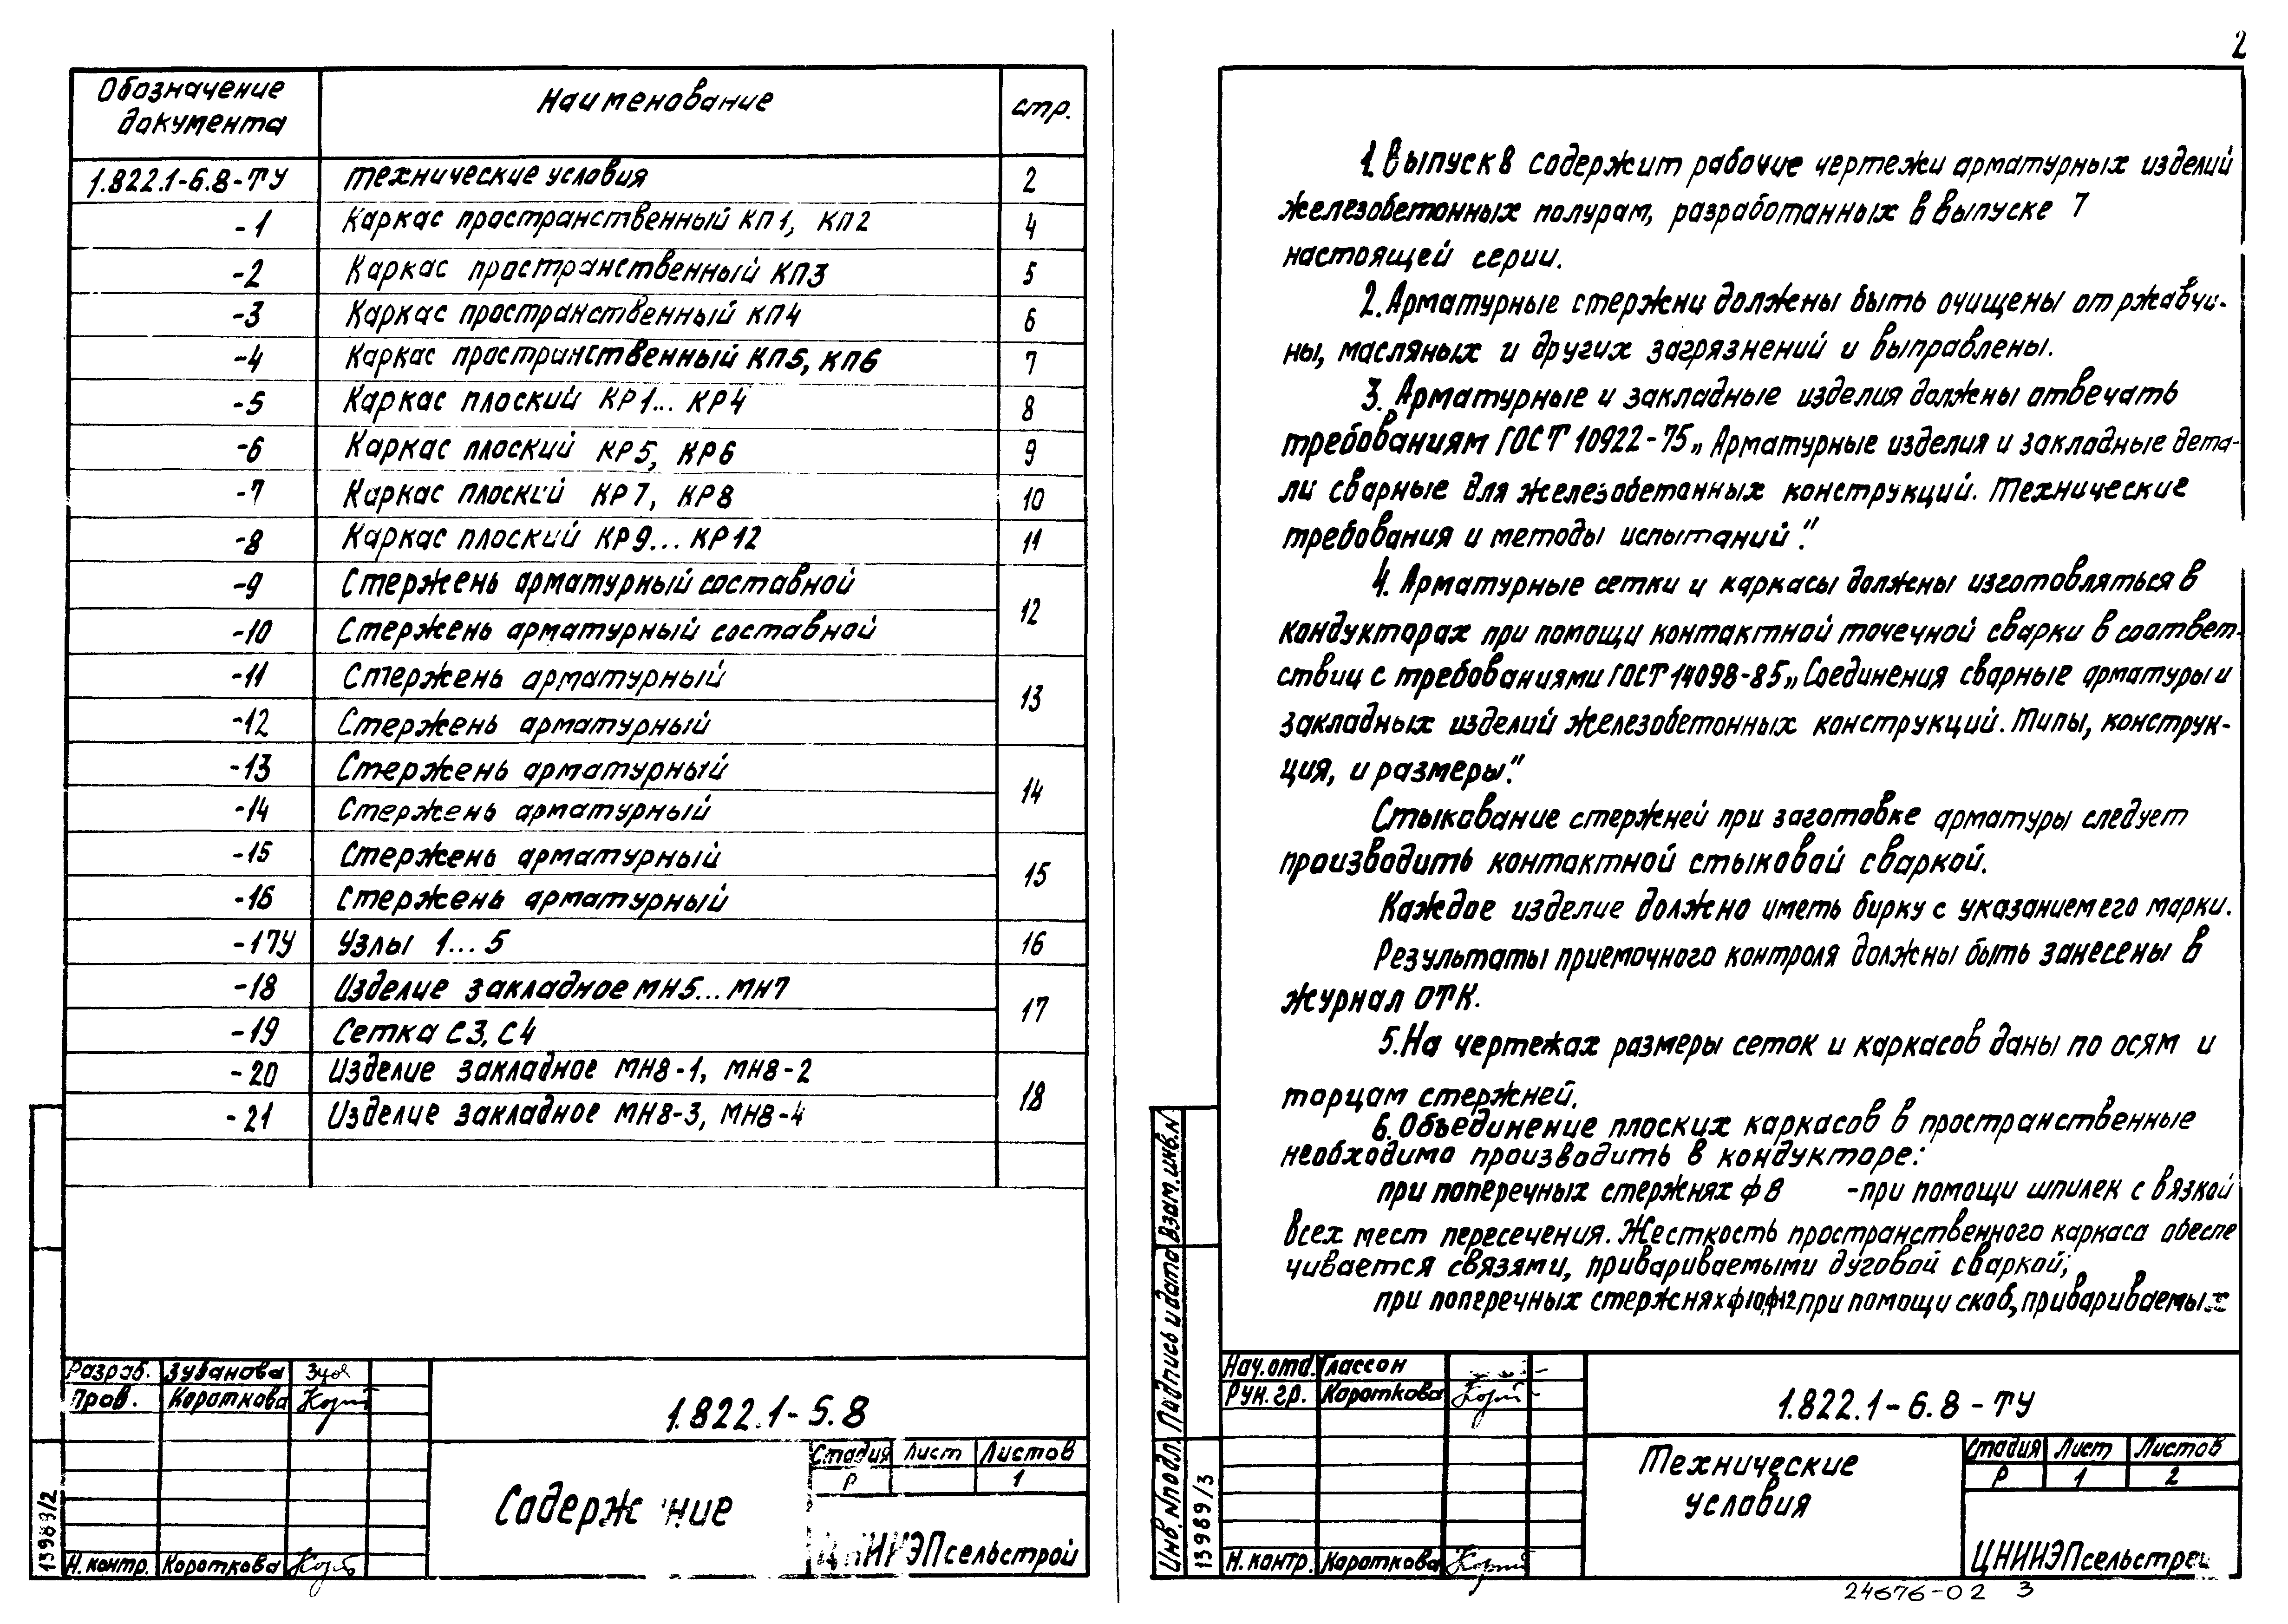 2
Обозначение документа Наименование стр.
1.822.1-6.8-ТУ Технические условия 2
-1 Каркас пространственный КП1, КП2 4
-2 Каркас пространственный КП3 5
-3 Каркас пространственный КП4 6
-4 Каркас простринственный КП5, КП6 7
-5 Каркас плоский КР1... КР4 8
-6 Каркас плоский КР5, КР6 9
-7 Каркас плоский КР7, КР8 10
-8 Каркас плоский КР9... КР12 11
-9 Стержень арматурный составной 12
-10 Стержень арматурный составной
-11 Стержень арматурный 13
-12 Стержень арматурный
-13 Стержень арматурный 14
-14 Стержень арматурный
-15 Стержень арматурный 15
-16 Стержень арматурный
-17У Узлы 1... 5 16
-18 Изделие закладное МН5... МН7 17
-19 Сетка С3, С4
-20 Изделие закладное МН8-1, МН8-2 18
-21 Изделие закладное МН8-3, МН8-4
Разраб. Зубанова
Пров. Короткова
1.822.1-5.8
Стадия Лист Листов
Р 1
Содерж ние
ЦНИИЭПсельстрой
Н.контр. Короткова
13989/2
1. Выпуск 8 содержит рабочие чертежи арматурных изделий
железобетонных полурам, разработанных в выпуске 7
настоящей серии.
2. Арматурные стержни должены быть очищены от ржавчи-
ны, масляных и других загрязнений и выправлены.
3. Арматурные и закладные изделия должны отвечать
требованиям ГОСТ 10922-75 „Арматурные изделия и закладные дета-
ли сварные для железобетонных конструкций. Технические
требования и методы испытаний".
4. Арматурные сетки и каркасы должны изготовляться в
кондукторах при помощи контактной точечной сварки в соответ-
ствии с требованиями ГОСТ 14098-85 „Соединения сварные арматуры и
закладных изделий железобетонных конструкций. Типы, конструк-
ция, и размеры".
Стыкование стержней при заготовке арматуры следует
производить контактной стыковой сваркой.
Каждое изделие должно иметь бирку с указанием его марки.
Результаты приемочного контроля должны быть занесены в
журнал ОТК.
5. На чертежах размеры сеток и каркасов даны по осям и
торцам стержней.
6. Объединение плоских каркасов в пространственные
необходимо производить в кондукторе:
при поперечных стержнях ф 8 -при помощи шпилек с вязкой
всех мест пересечения. Жесткость пространственного каркаса обеспе
чивается связями, привариваемыми дуговой сваркой;
при поперечных стержнях ф10,ф12 при помощи скоб, привариваемых
Нач.отд. Глассон
Рук. гр. Короткова
1.822.1-6.8-ТУ
Технические условия
Стадия Лист Листов
Р 1 2
ЦНИИЭПсельстрой
Н. контр. Короткова
Инв. N подл. Подпись и дата Взам. инв. N
13989/3
24676-02 3